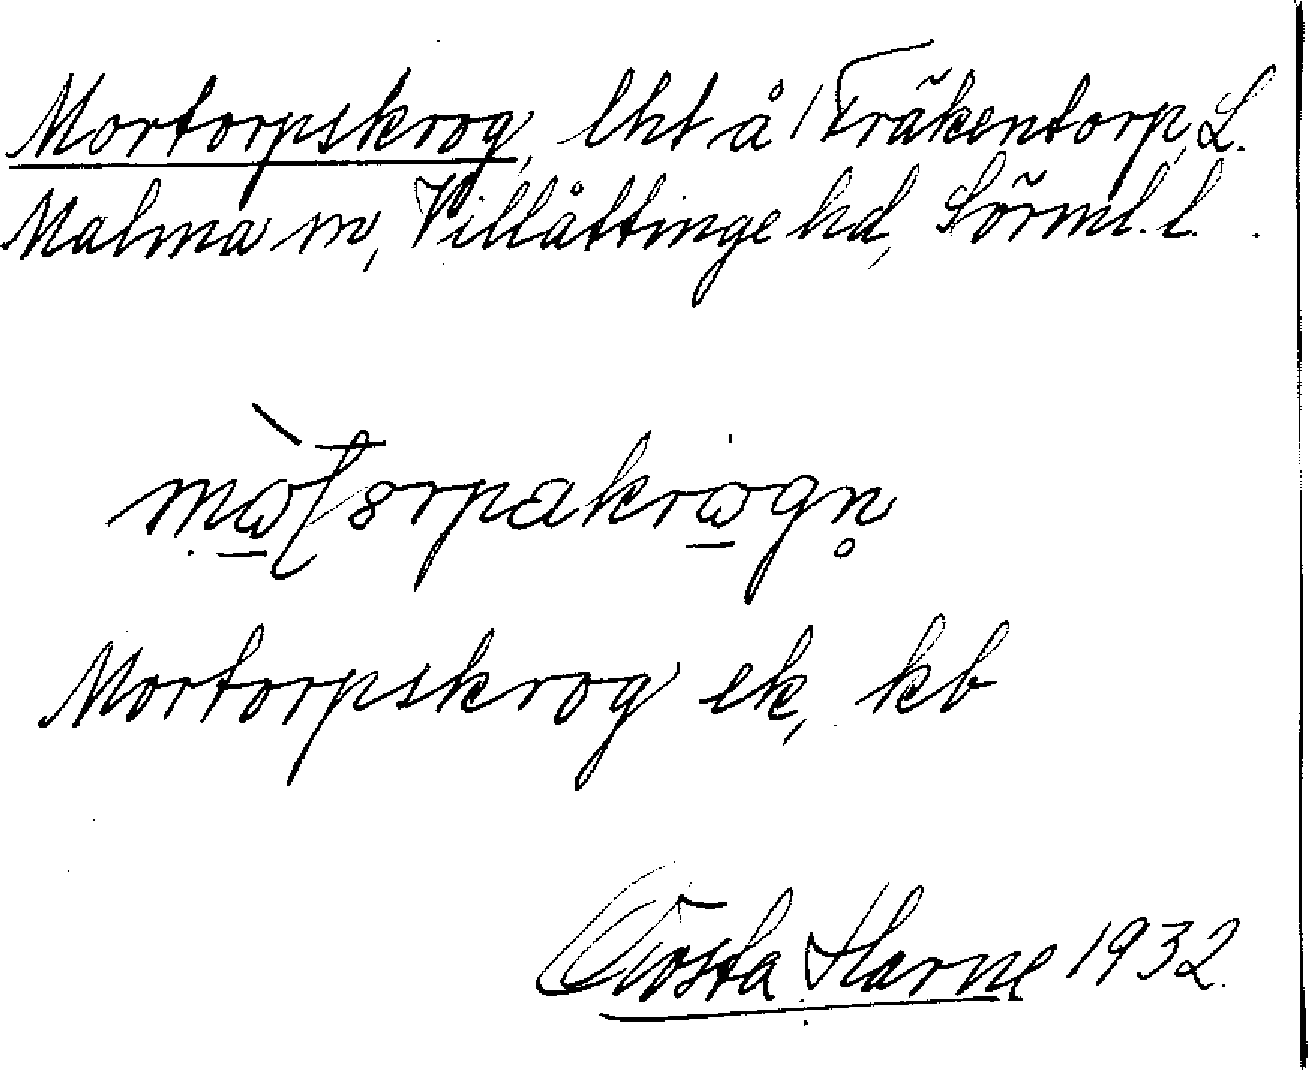 Mortorpskrog, lht å 1 Fräkentorp, L.
Malma sn, Villåttinge hd, Sörml. l.
Mortorpskrog ek, kb
Gösta Harne 1932.